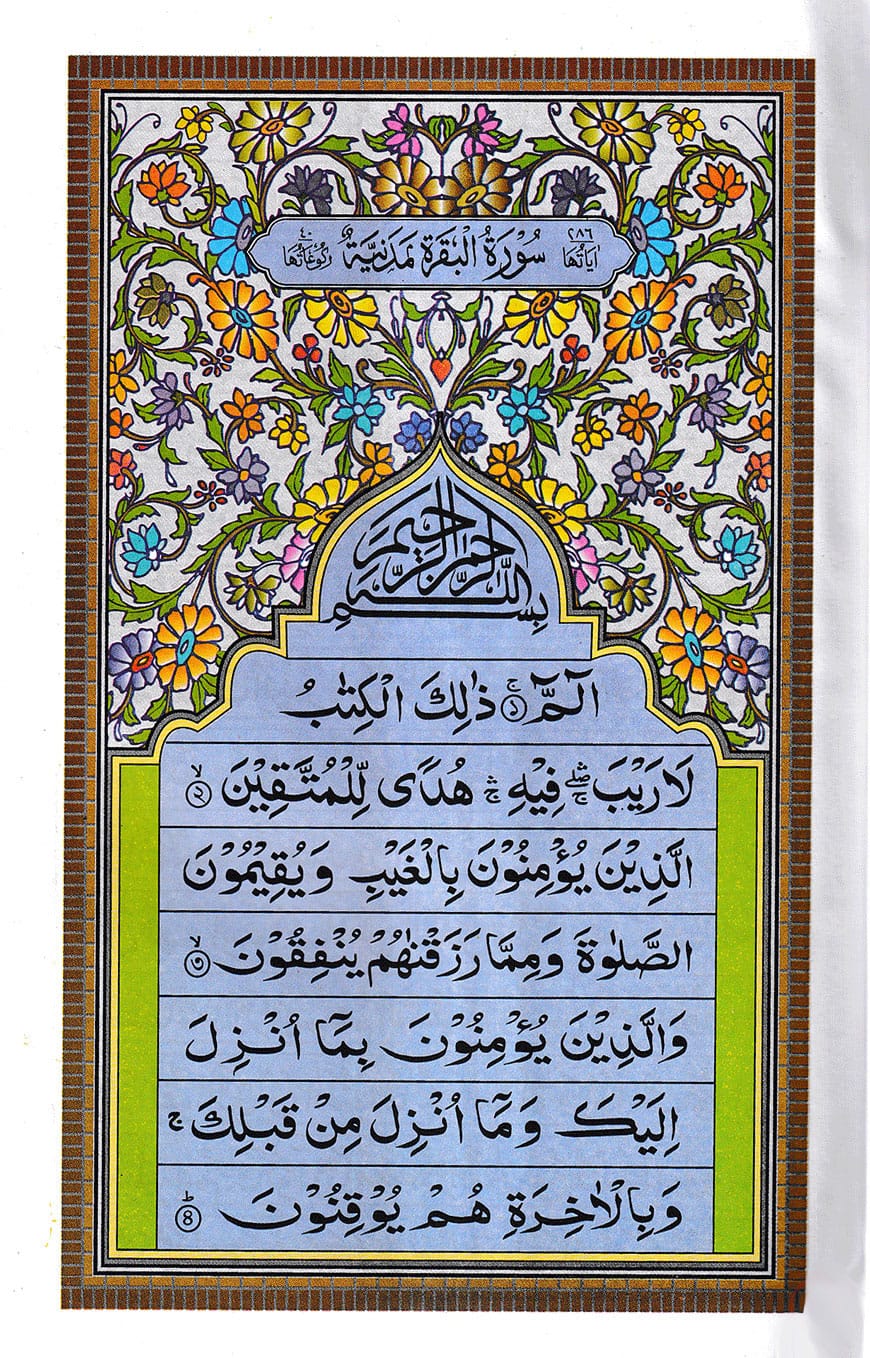 اٰیَاتُهَا ٢٨٦ سُوْرَةُ الْبَقَرَةِ مَدَنِيَّةٌ رُكُوْعَاتُهَا ٤٠
بِسْمِ اللّٰهِ الرَّحْمٰنِ الرَّحِيْمِ
الٓمّٓ ۚ ﴿۱﴾ ذٰلِكَ الْكِتٰبُ
لَا رَيْبَ ۛۖۚ فِيْهِ ۛۚ هُدًى لِّلْمُتَّقِيْنَ ۙ ﴿۲﴾
الَّذِيْنَ يُؤْمِنُوْنَ بِالْغَيْبِ وَيُقِيْمُوْنَ
الصَّلٰوةَ وَمِمَّا رَزَقْنٰهُمْ يُنْفِقُوْنَ ۙ ﴿۳﴾
وَالَّذِيْنَ يُؤْمِنُوْنَ بِمَآ اُنْزِلَ
اِلَيْكَ وَمَآ اُنْزِلَ مِنْ قَبْلِكَ ۚ
وَبِالْاٰخِرَةِ هُمْ يُوْقِنُوْنَ ؕ ﴿۴﴾